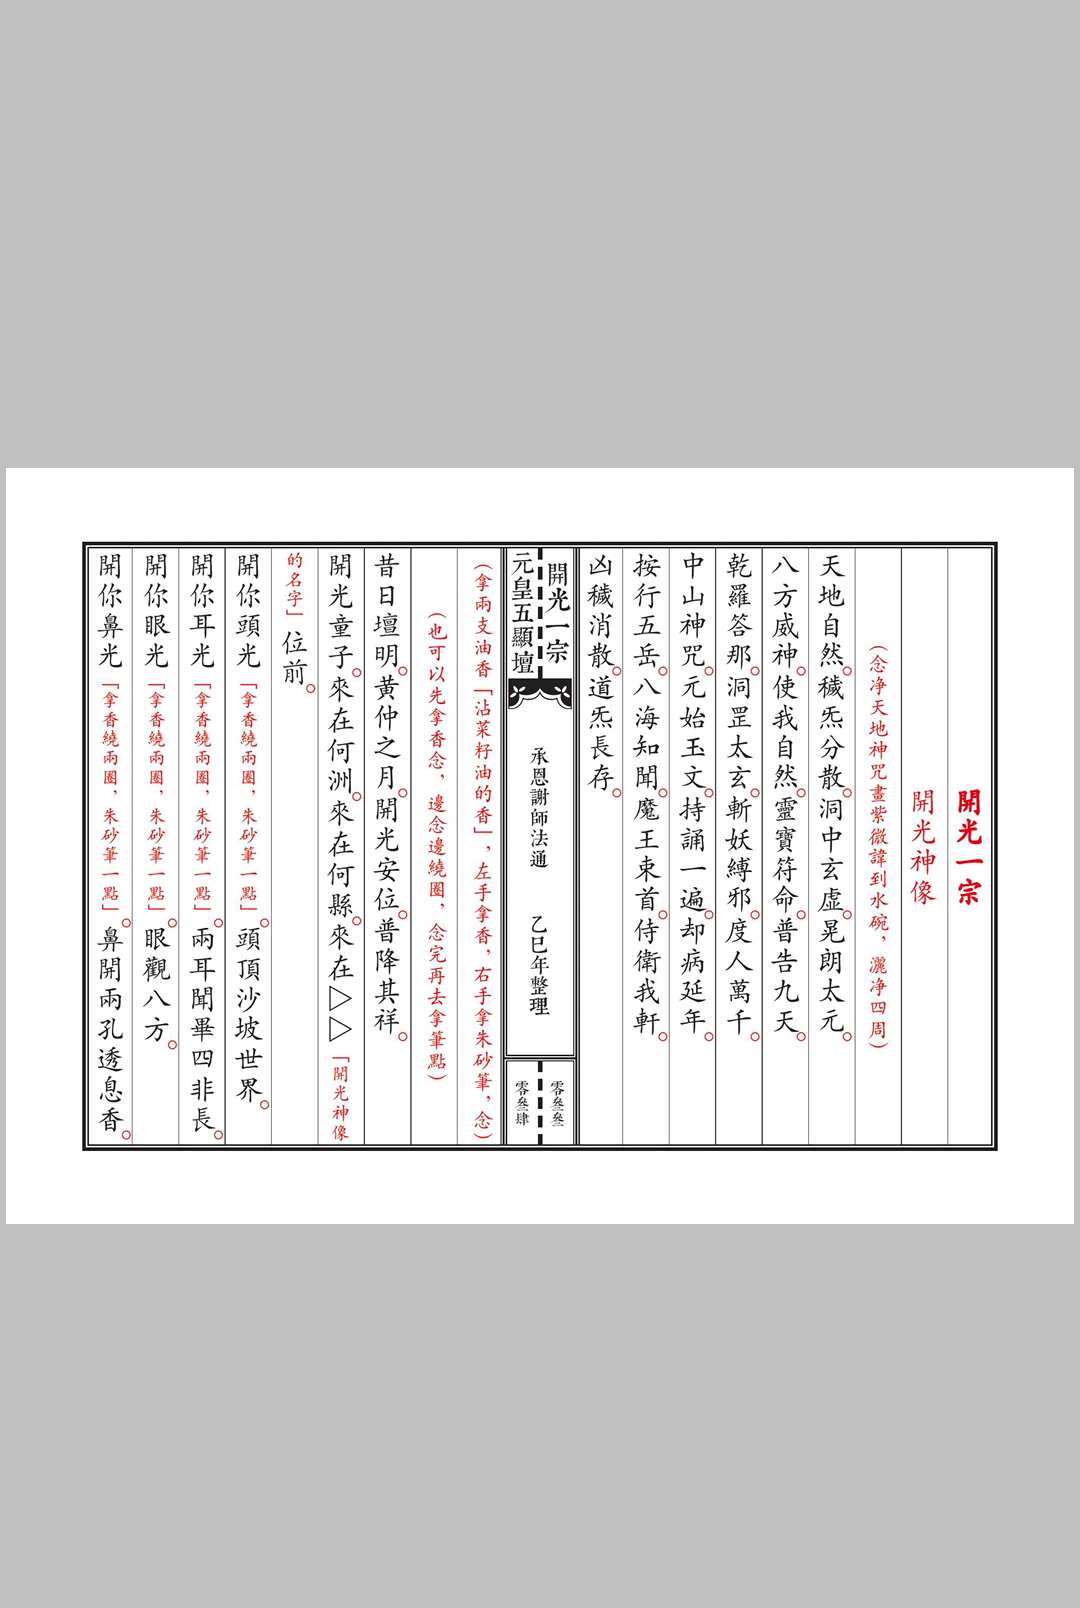 開光一宗
開光神像
（念净天地神咒畫紫微諱到水碗，灑净四周）
天地自然。穢炁分散。洞中玄虛。晃朗太元。
八方威神。使我自然。靈寶符命。普告九天。
乾羅答那。洞罡太玄。斬妖縛邪。度人萬千。
中山神咒。元始玉文。持誦一遍。却病延年。
按行五岳。八海知聞。魔王束首。侍衛我軒。
凶穢消散。道炁長存。
開光一宗
元皇五顯壇
承恩謝師法通 乙巳年整理
零叄叄
零叄肆
（拿兩支油香「沾菜籽油的香」，左手拿香，右手拿朱砂筆，念）
（也可以先拿香念，邊念邊繞圈，念完再去拿筆點）
昔日壇明。黃仲之月。開光安位。普降其祥。
開光童子。來在何洲。來在何縣。來在▷▷「開光神像
的名字」位前。
開你頭光「拿香繞兩圈，朱砂筆一點」。頭頂沙坡世界。
開你耳光「拿香繞兩圈，朱砂筆一點」。兩耳聞畢四非長。
開你眼光「拿香繞兩圈，朱砂筆一點」。眼觀八方。
開你鼻光「拿香繞兩圈，朱砂筆一點」。鼻開兩孔透息香。